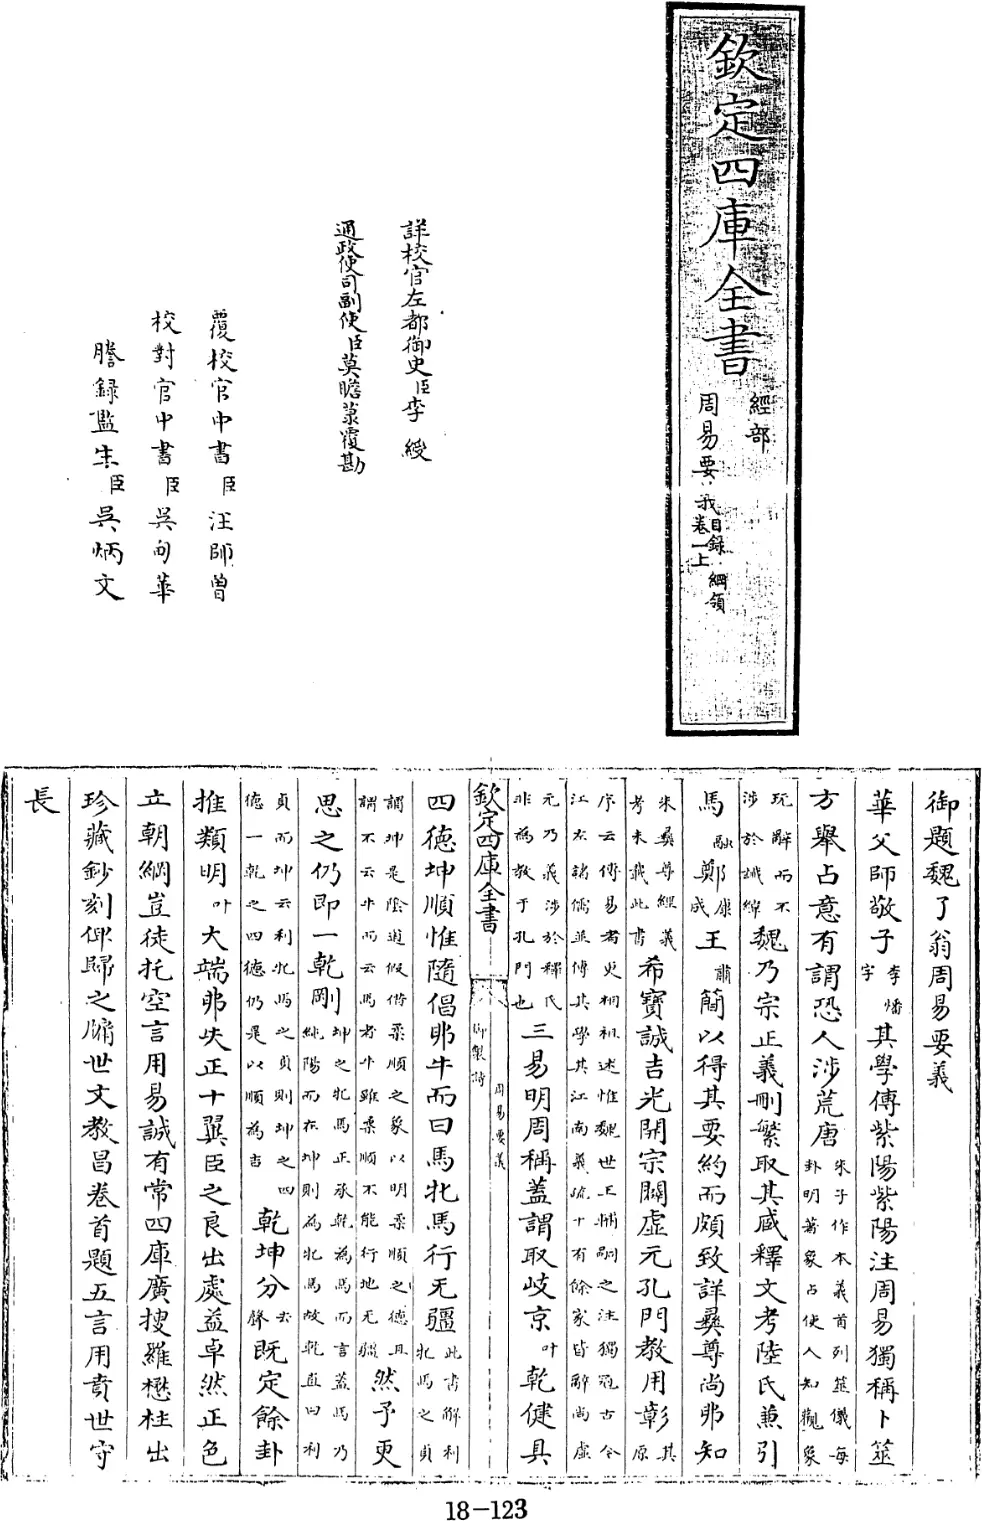 欽定四庫全書
經部
周易要義
目錄 綱領
卷一上
詳校官左都御史臣李綬
通政使司副使臣莫瞻菉覆勘
覆校官中書臣汪師曾
校對官中書臣吳甸華
謄錄監生臣吳炳文
御題魏了翁周易要義
華父師敬子李燔字其學傳紫陽紫陽注周易獨稱卜筮
方舉占意有謂恐人涉荒唐朱子作本義首列筮儀每卦明著象占使人知觀象
玩辭而不涉於讖緯魏乃宗正義刪繁取其臧釋文考陸氏兼引
馬融鄭康成王肅簡以得其要約而頗致詳彞尊尚弗知
朱彞尊經義考未載此書希寶誠吉光開宗闢虛元孔門教用彰其原
序云傳易者更相祖述惟魏世王輔嗣之注獨冠古今江左諸儒並傳其學其江南義疏十有餘家皆辭尚虛
元乃義涉於釋氏非為教于孔門也三易明周稱蓋謂取岐京叶乾健具
欽定四庫全書
御製詩
周易要義
四德坤順惟隨倡弗牛而曰馬牝馬行无疆此書解利牝馬之貞
謂坤是陰道假借柔順之象以明柔順之德且謂不云牛而云馬者牛雖柔順不能行地无疆然予更
思之仍即一乾剛坤之牝馬正承乾為馬而言蓋馬乃純陽而在坤則為牝馬故乾直曰利
貞而坤云利牝馬之貞則坤之四德一乾之四德仍是以順為吉乾坤分去聲既定餘卦
推類明叶大端弗失正十翼臣之良出處益卓然正色
立朝綱豈徒托空言用易誠有常四庫廣搜羅懋柱出
珍藏鈔刻仰歸之牖世文教昌卷首題五言用賁世守
長
18-123